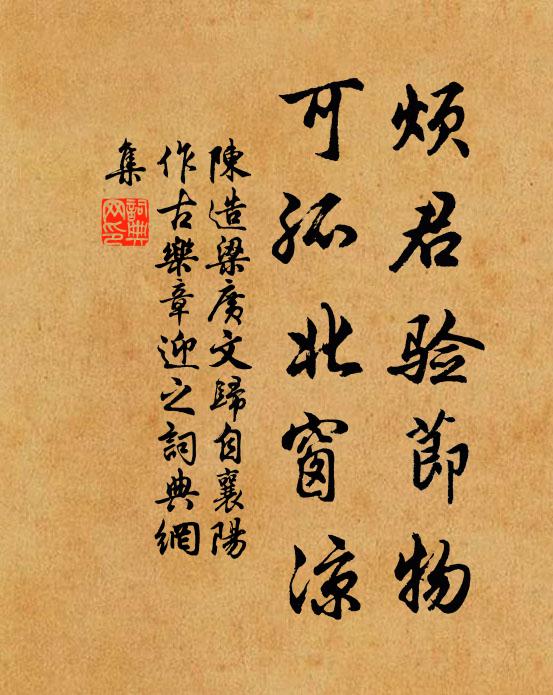 烦君验節物
可孤北窗凉
陳造梁廣文歸自襄陽
作古樂章迎之詞典網
集
詞典网印